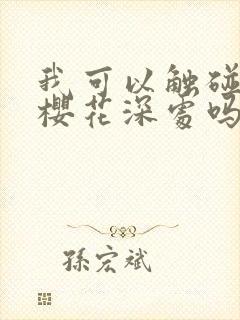 我可以触碰
樱花深處吗
孫宏斌